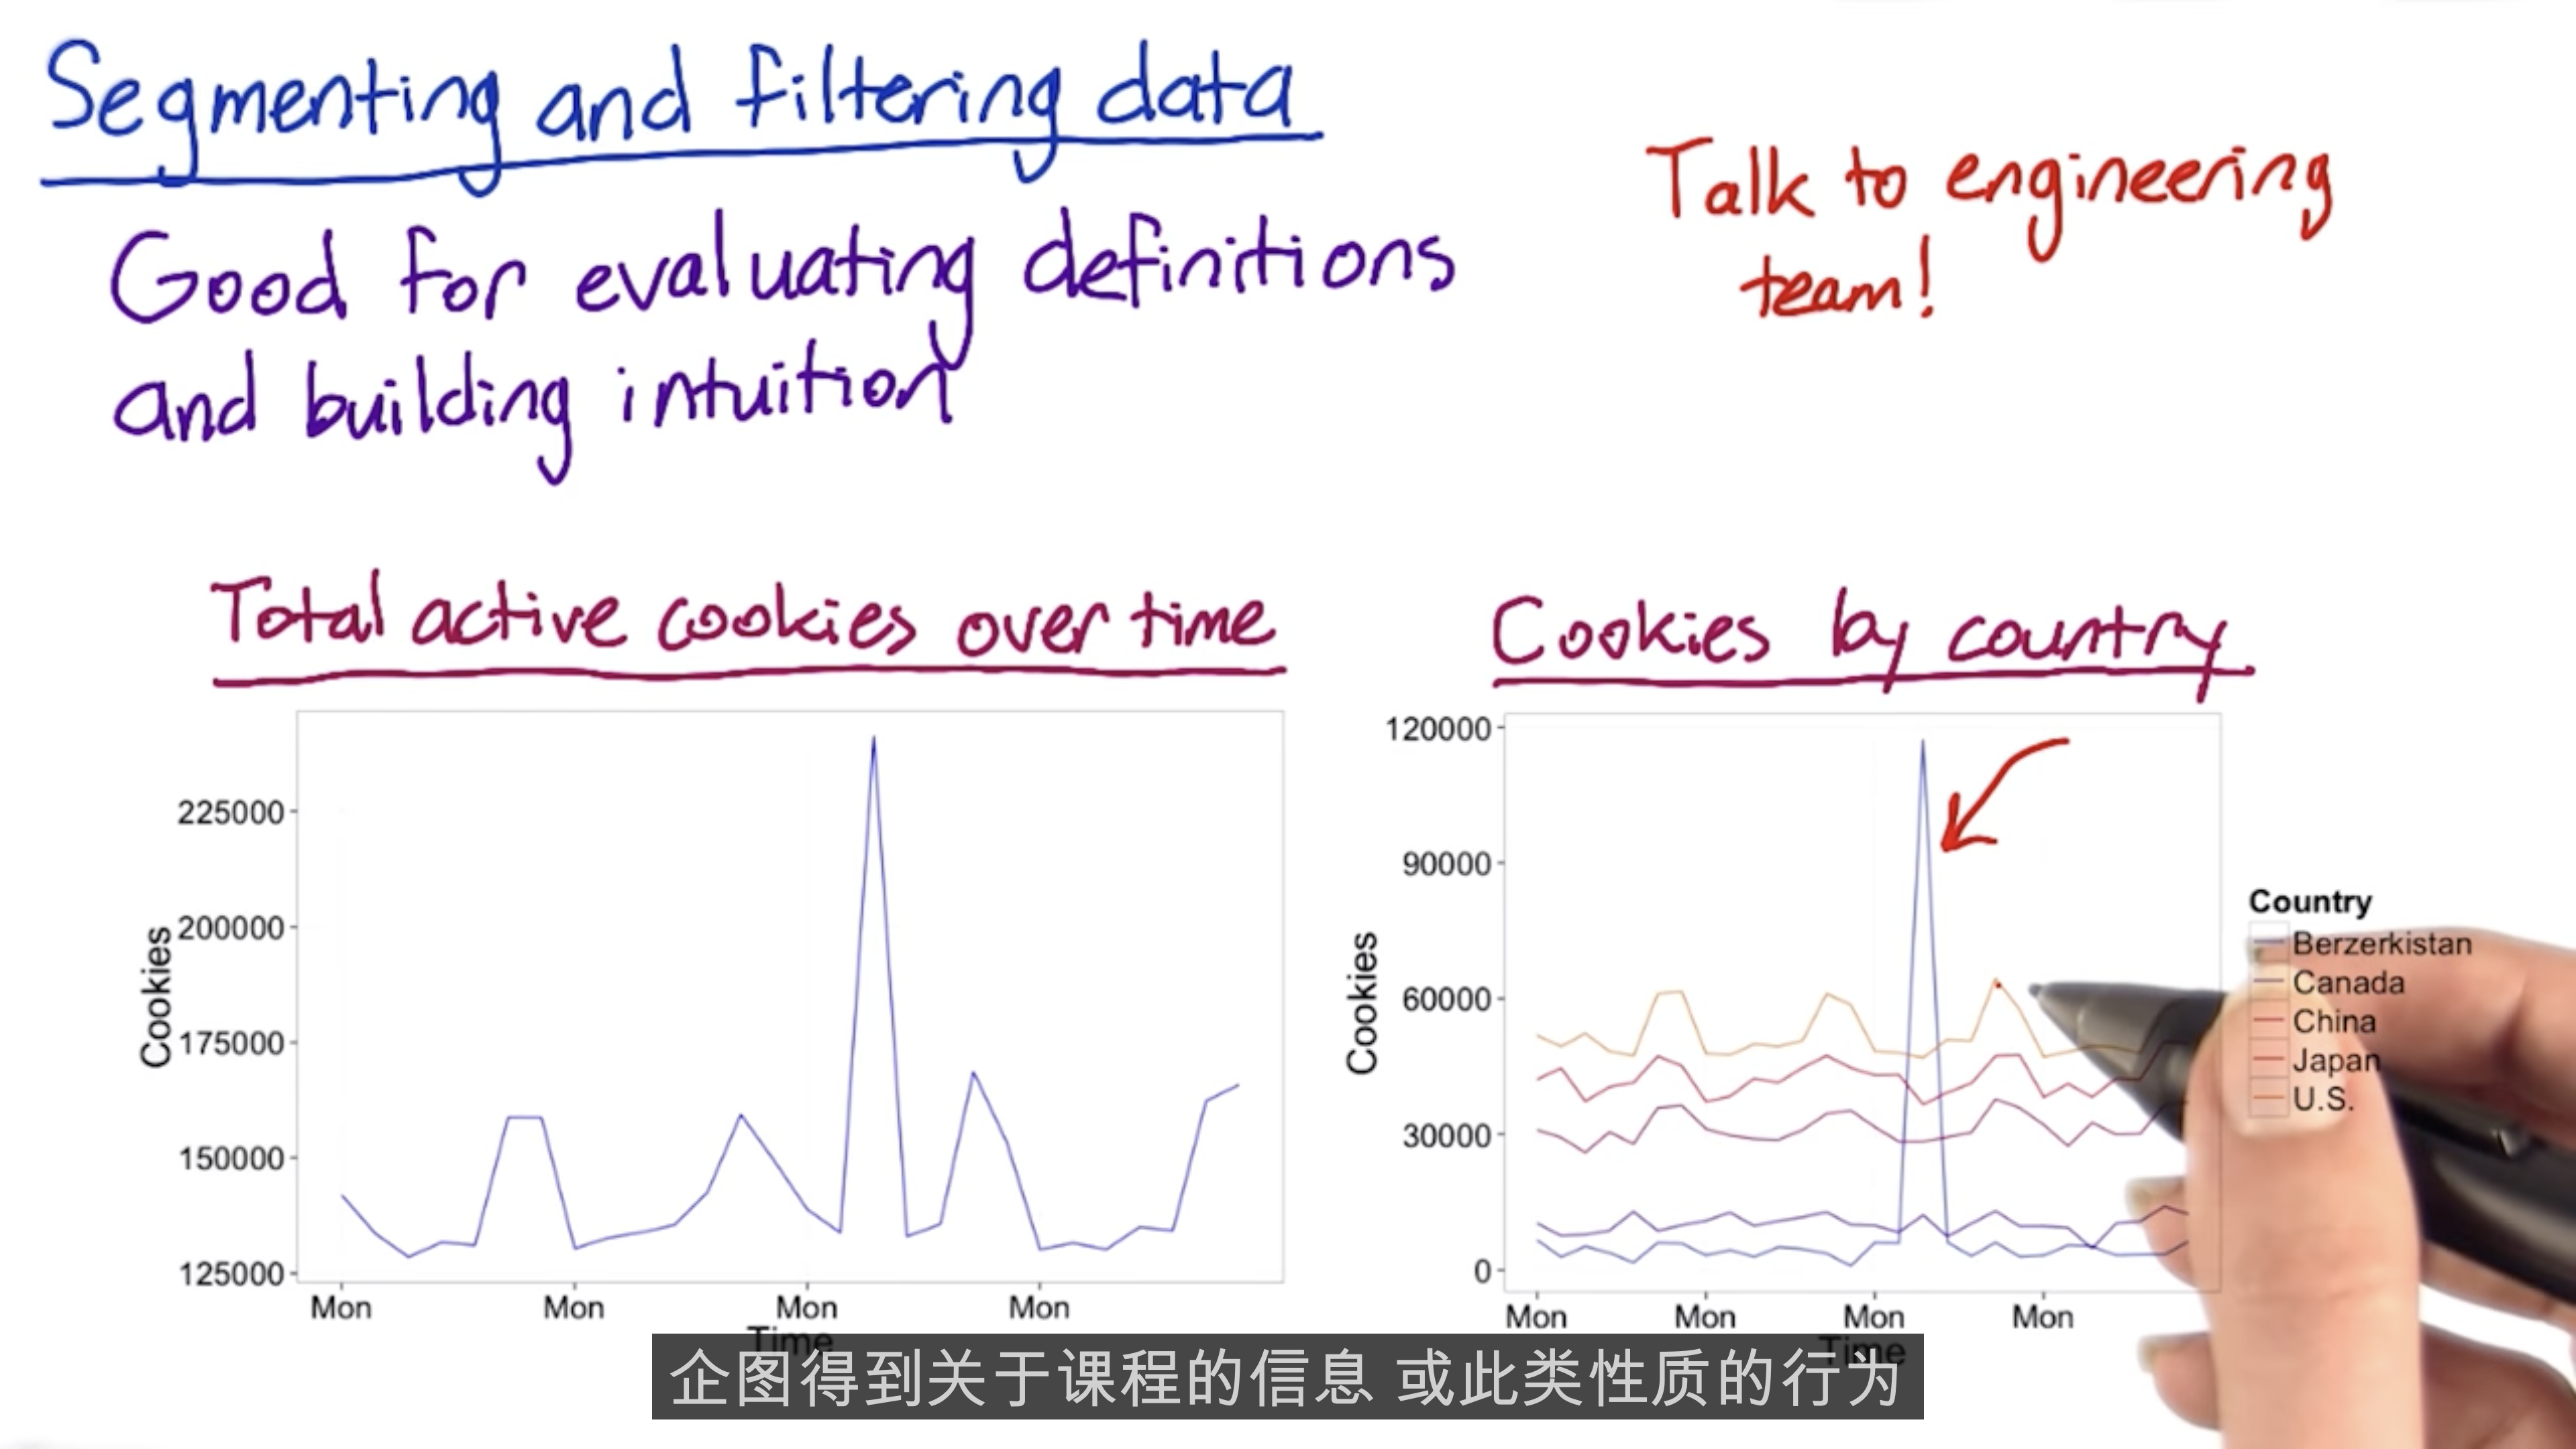 Segmenting and filtering data
Good for evaluating definitions
and building intuition
Talk to engineering
team!
Total active cookies over time
225000
200000
175000
150000
125000
Cookies
Mon Mon Mon Mon
Time
Cookies by country
120000
90000
60000
30000
0
Cookies
Mon Mon Mon Mon
Time
Country
Berzerkistan
Canada
China
Japan
U.S.
企图得到关于课程的信息 或此类性质的行为